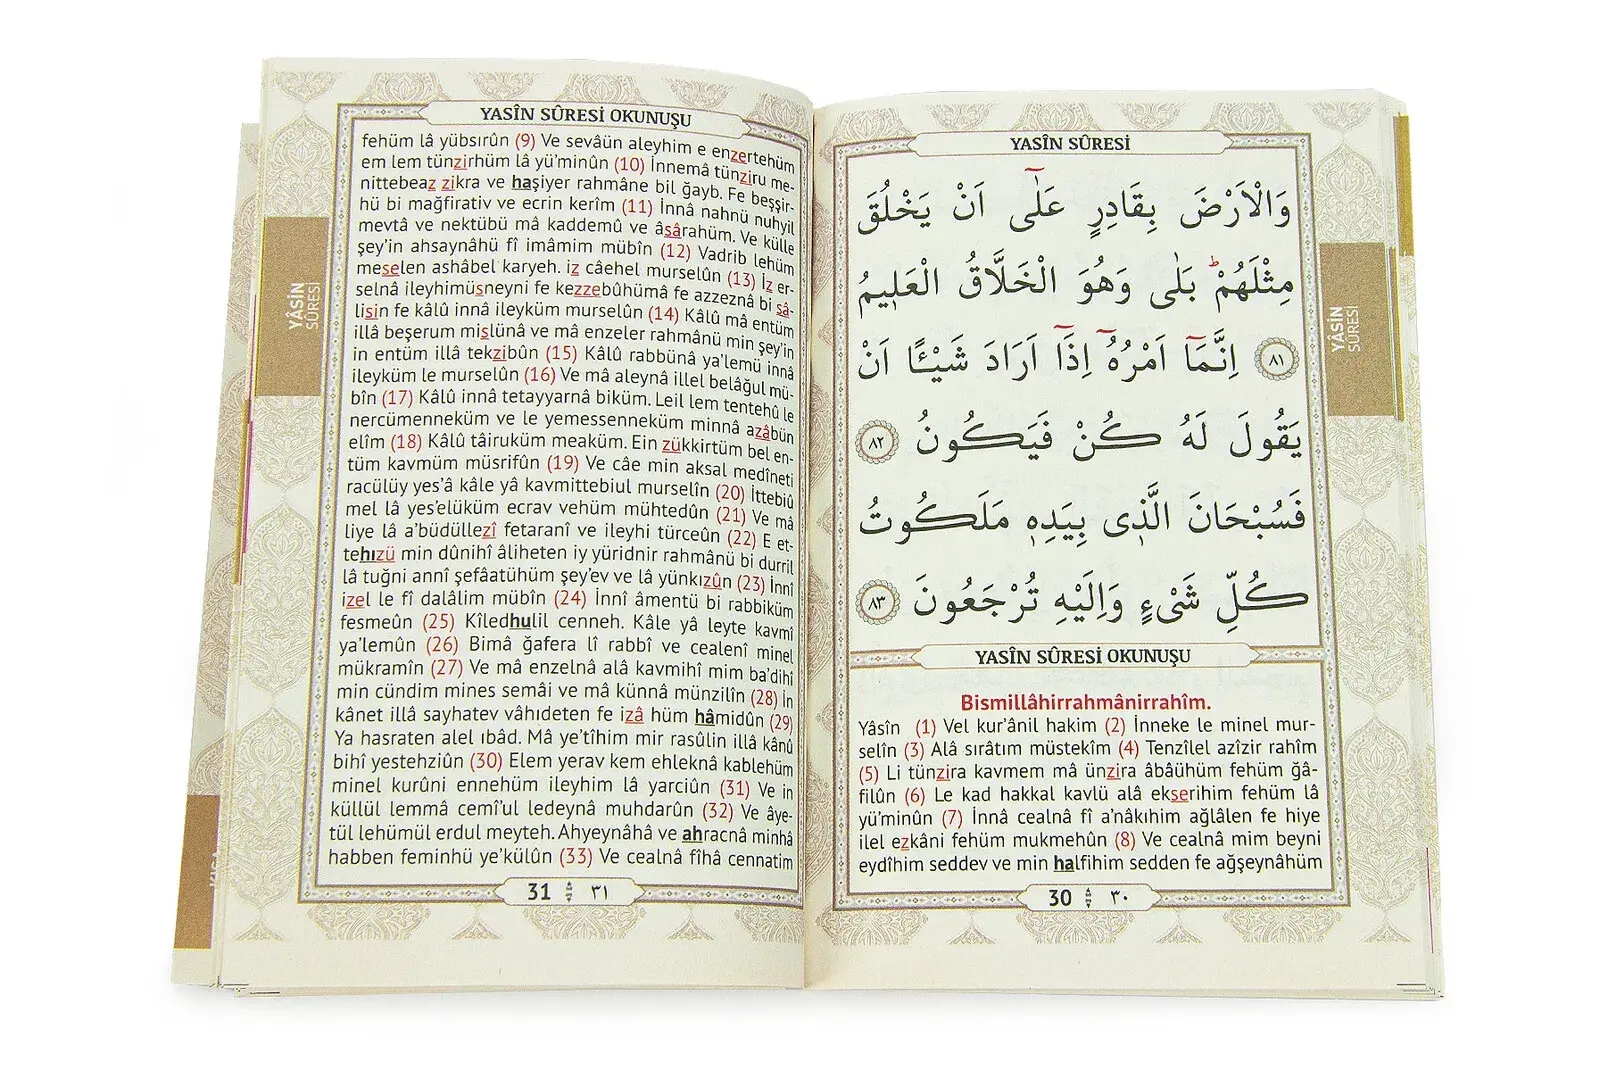 YASÎN SÛRESİ
وَالْاَرْضَ بِقَادِرٍ عَلٰٓى اَنْ يَخْلُقَ
مِثْلَهُمْ ۜ بَلٰى وَهُوَ الْخَلَّاقُ الْعَل۪يمُ
﴿٨١﴾ اِنَّمَٓا اَمْرُهُٓ اِذَٓا اَرَادَ شَيْـًٔا اَنْ
يَقُولَ لَهُ كُنْ فَيَكُونُ ﴿٨٢﴾
فَسُبْحَانَ الَّذ۪ي بِيَدِه۪ مَلَكُوتُ
كُلِّ شَيْءٍ وَاِلَيْهِ تُرْجَعُونَ ﴿٨٣﴾
YASÎN SÛRESİ OKUNUŞU
Bismillâhirrahmânirrahîm.
Yâsîn (1) Vel kur’ânil hakim (2) İnneke le minel mur-
selîn (3) Alâ sırâtım müstekîm (4) Tenzîlel azîzir rahîm
(5) Li tünzira kavmem mâ ünzira âbâühüm fehüm ğâ-
filûn (6) Le kad hakkal kavlü alâ ekserihim fehüm lâ
yü’minûn (7) İnnâ cealnâ fî a’nâkıhim ağlâlen fe hiye
ilel ezkâni fehüm mukmehûn (8) Ve cealnâ mim beyni
eydîhim seddev ve min halfihim sedden fe ağşeynâhüm
30 ٣٠
YÂSİN
SÛRESİ
YASÎN SÛRESİ OKUNUŞU
fehüm lâ yübsırûn (9) Ve sevâün aleyhim e enzertehüm
em lem tünzirhüm lâ yü’minûn (10) İnnemâ tünziru me-
nittebeaz zikra ve haşiyer rahmâne bil ğayb. Fe beşşir-
hü bi mağfirativ ve ecrin kerîm (11) İnnâ nahnü nuhyil
mevtâ ve nektübü mâ kaddemû ve âsârahüm. Ve külle
şey’in ahsaynâhü fî imâmim mübîn (12) Vadrib lehüm
meselen ashâbel karyeh. iz câehel murselûn (13) İz er-
selnâ ileyhimüsneyni fe kezzebûhümâ fe azzeznâ bi sâ-
lisin fe kâlû innâ ileyküm murselûn (14) Kâlû mâ entüm
illâ beşerum mislünâ ve mâ enzeler rahmânü min şey’in
in entüm illâ tekzibûn (15) Kâlû rabbünâ ya’lemü innâ
ileyküm le murselûn (16) Ve mâ aleynâ illel belâğul mü-
bîn (17) Kâlû innâ tetayyarnâ biküm. Leil lem tentehû le
nercümenneküm ve le yemessenneküm minnâ azâbün
elîm (18) Kâlû tâiruküm meaküm. Ein zükkirtüm bel en-
tüm kavmüm müsrifûn (19) Ve câe min aksal medîneti
racülüy yes’â kâle yâ kavmittebiul murselîn (20) İttebiû
mel lâ yes’elüküm ecrav vehüm mühtedûn (21) Ve mâ
liye lâ a’büdüllezî fetaranî ve ileyhi türceûn (22) E et-
tehızü min dûnihî âliheten iy yüridnir rahmânü bi durril
lâ tuğni annî şefâatühüm şey’ev ve lâ yünkızûn (23) İnnî
izel le fî dalâlim mübîn (24) İnnî âmentü bi rabbiküm
fesmeûn (25) Kîledhulil cenneh. Kâle yâ leyte kavmî
ya’lemûn (26) Bimâ ğafera lî rabbî ve cealenî minel
mükramîn (27) Ve mâ enzelnâ alâ kavmihî mim ba’dihî
min cündim mines semâi ve mâ künnâ münzilîn (28) İn
kânet illâ sayhatev vâhıdeten fe izâ hüm hâmidûn (29)
Ya hasraten alel ıbâd. Mâ ye’tîhim mir rasûlin illâ kânû
bihî yestehziûn (30) Elem yerav kem ehleknâ kablehüm
minel kurûni ennehüm ileyhim lâ yarciûn (31) Ve in
küllül lemmâ cemî’ul ledeynâ muhdarûn (32) Ve âye-
tül lehümül erdul meyteh. Ahyeynâhâ ve ahracnâ minhâ
habben feminhü ye’külûn (33) Ve cealnâ fîhâ cennatim
31 ٣١
YÂSİN
SÛRESİ